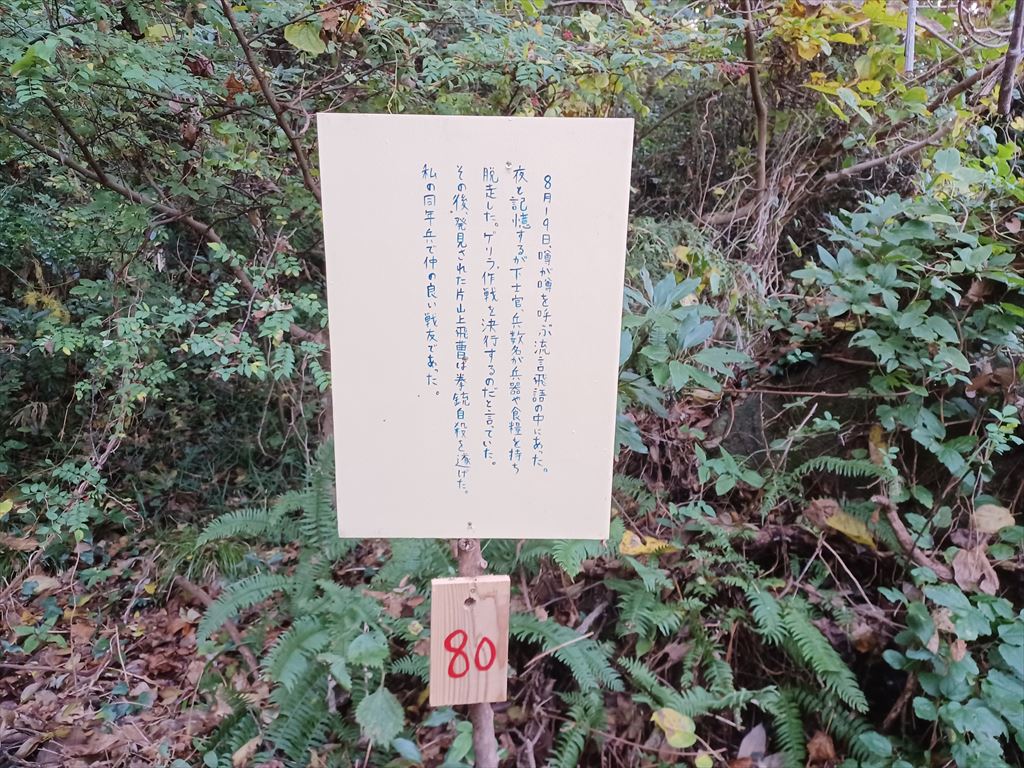 8月19日、噂が噂を呼ぶ流言飛語の中にあった。
夜と記憶するが下士官、兵数名が兵器や食糧を持ち
脱走した。ゲリラ作戦を決行するのだと言っていた。
その後、発見された片山上飛曹は拳銃自殺を遂げた。
私の同年兵で仲の良い戦友であった。
80